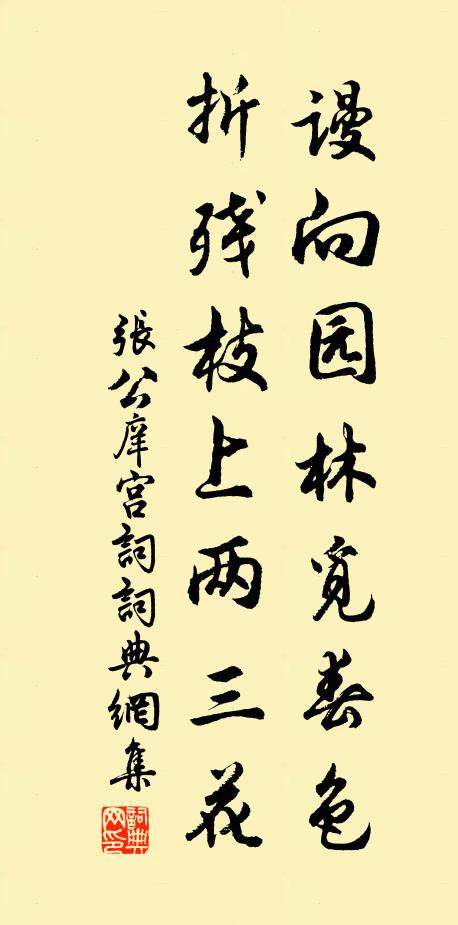 谩向园林觅春色
折残枝上两三花
張公庠宫詞詞典網集
詞典网印